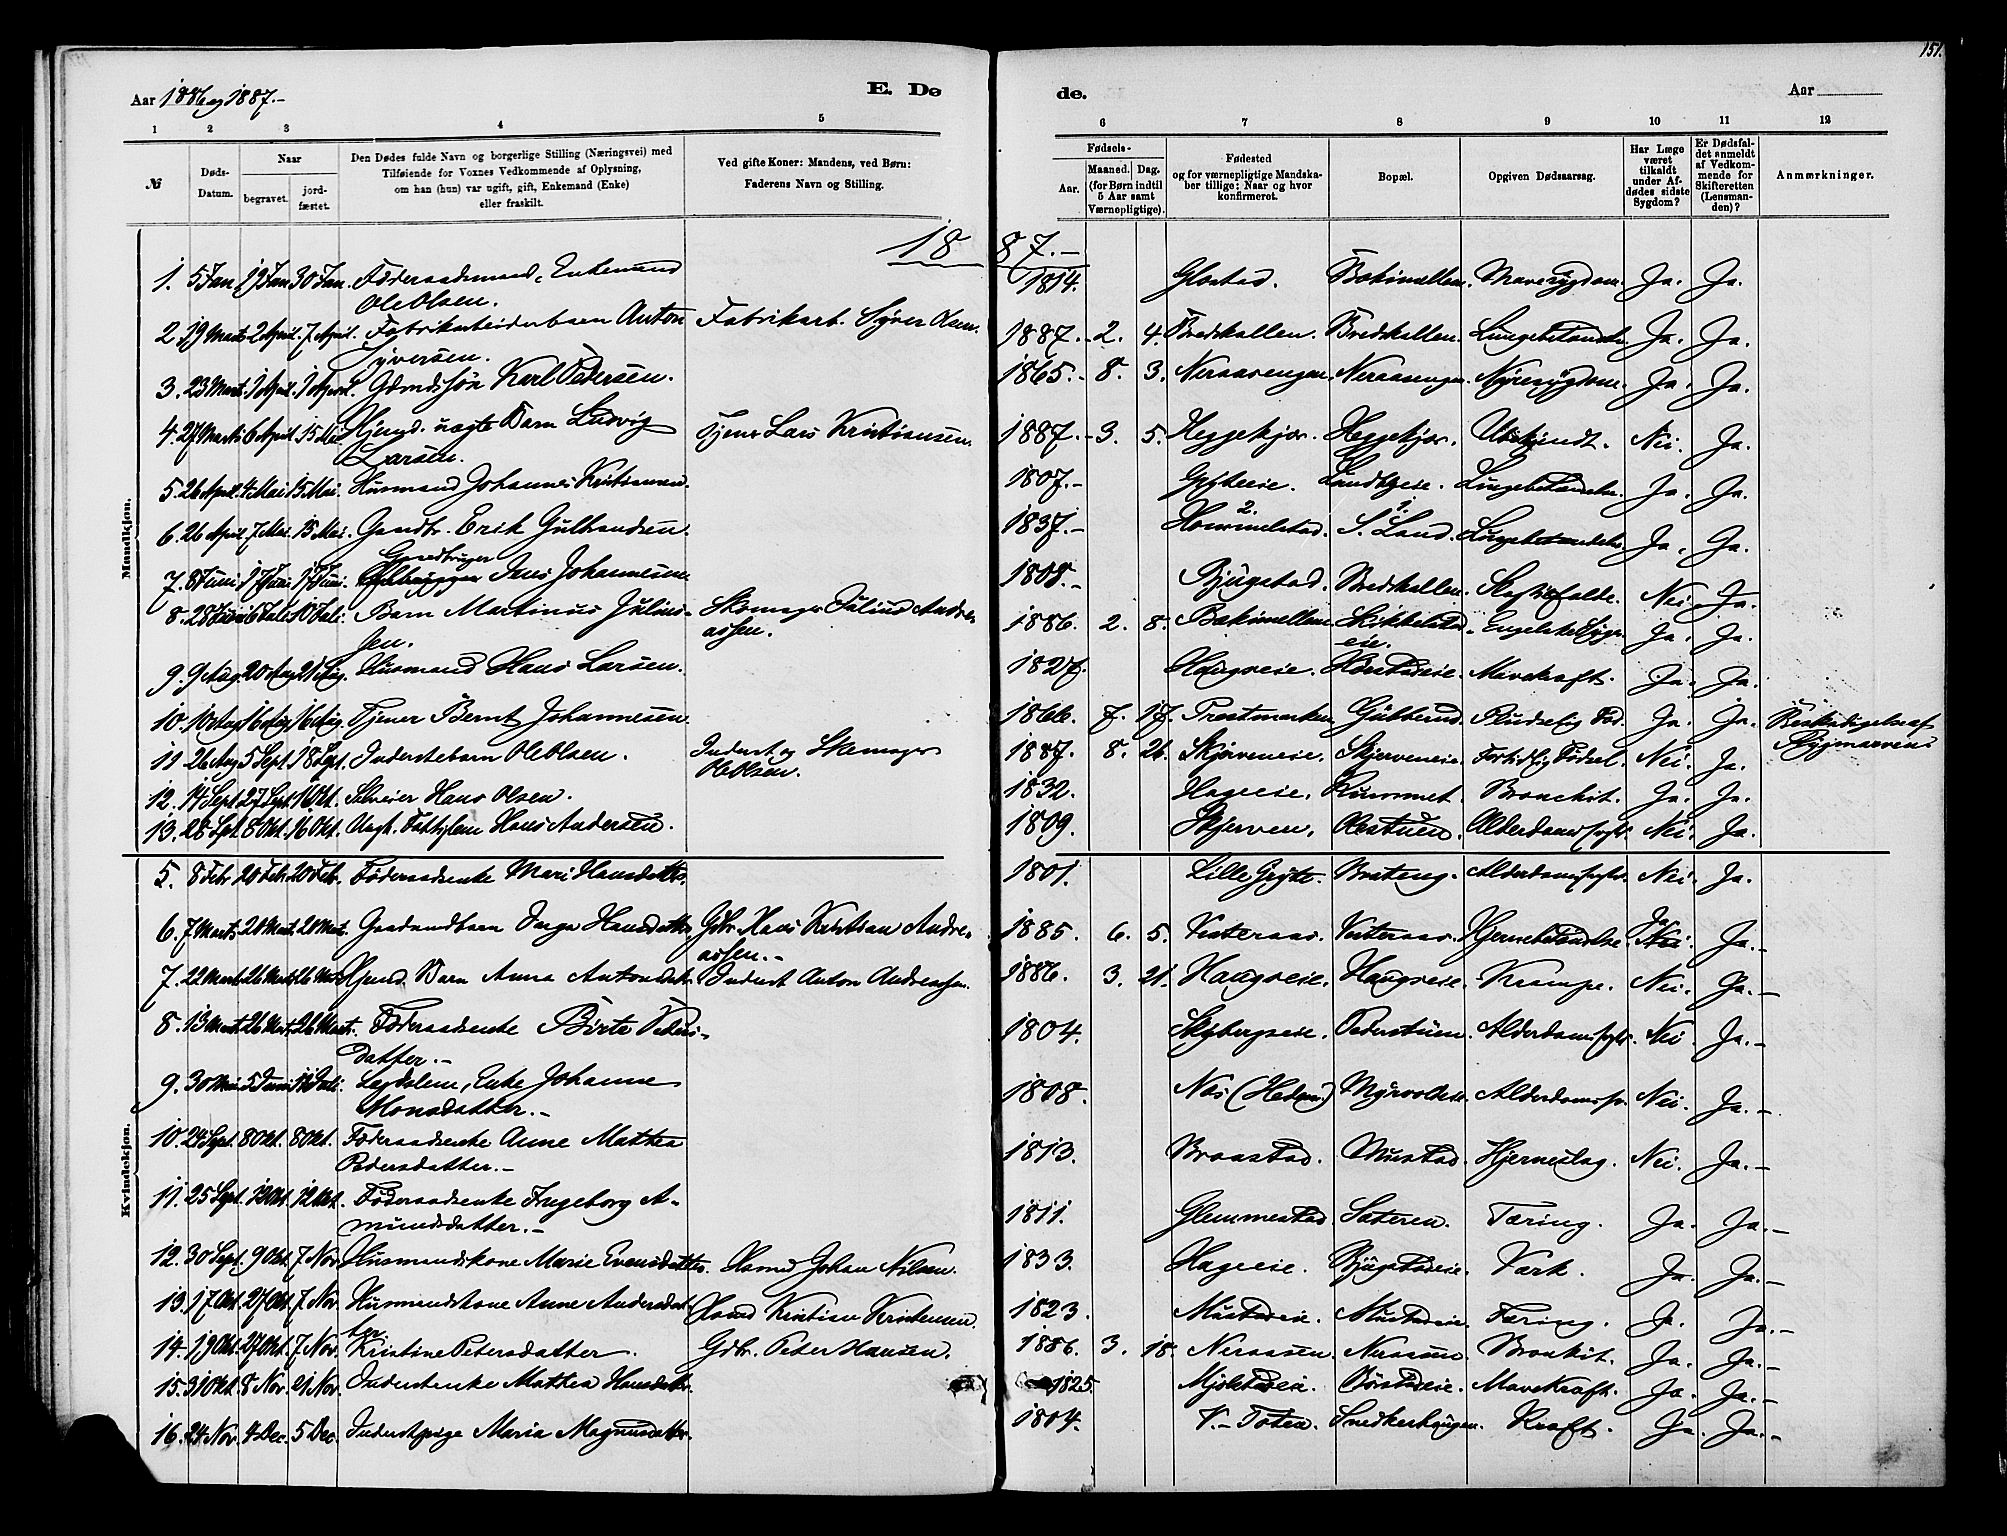 151.
Aar 1886 og 1887.-
E. Dø
de.
Aar
1 2 3 4 5 6 7 8 9 10 11 12
№
Døds-
Datum.
Naar
begravet.
jord-
fæstet.
Den Dødes fulde Navn og borgerlige Stilling (Næringsvei) med
Tilføiende for Voxnes Vedkommende af Oplysning,
om han (hun) var ugift, gift, Enkemand (Enke)
eller fraskilt.
Ved gifte Koner: Mandens, ved Børn:
Faderens Navn og Stilling.
Fødsels-
Aar.
Maaned. Dag.
(for Børn indtil
5 Aar samt
Værnepligtige).
Fødested
og for værnepligtige Mandska-
ber tillige: Naar og hvor
konfirmeret.
Bopæl.
Opgiven Dødsaarsag.
Har Læge
været
tilkaldt
under Af-
dødes sidste
Sygdom?
Er Dødsfal-
det anmeldt
af Vedkom-
mende for
Skifteretten
(Lensman-
den)?
Anmærkninger.
1887.-
Mandkjøn.
1. 5 Jan 19 Jan 30 Jan. Føderaadsmand, Enkemand 1814. Bakimellem. Mavesygdom. Ja. Ja.
Ole Olsen.
2. 19 Marts 2 April. 7 April. Fabrikarbeiderbarn Anton Fabrikarb. Syver Olsen. 1887.- 2. 4. Bredskallen. Bredskallen. Lungebetændelse. Ja. Ja.
Syversen.
3. 23 Marts 9 April. 9 April. Gdmdssøn Karl Pedersen. 1865.- 8. 3. Neraasengen. Neraasengen. Nyresygdom. Ja. Ja.
4. 27 Marts 6 April 15 Mai. Hjemd. uægte Barn Ludvig Tjener Lars Kristiansen. 1887.- 3. 5. Heggekjær. Heggekjær. Ubekjendt. Nei. Ja.
Larsen.
5. 26 April 4 Mai 15 Mai. Husmand Johannes Kristiansen. 1807.- Gryteeie. Lungebetændelse. Ja. Ja.
6. 26 April 7 Mai. 15 Mai. Gaardbr. Erik Gulbrandsen. 1837.- Hommelstad. S. Land. Lungebetændelse. Ja. Ja.
Gaardbruger
7. 8 Juni 17 Juni. 17 Juni. Jens Johannesen 1808.- Bjugstad. Bredskallen. Nei. Ja.
8. 28 Juni 6 Juli 10 Juli. Barn Martinus Julius- Skomager Julius Andre- 1886. 2. 8. Bakimellem Skikkelstad- Engelske Syge. Ja. Ja.
sen. assen. eie.
9. 9 Aug. 20 Aug 21 Aug. Husmand Hans Larsen. 1827. Haugseie. Børstadeie. Mavekræft. Ja. Ja.
10. 10 Aug 16 Aug 16 Aug. Tjener Bernt Johannesen 1866. 7. 17. Prestmarken Gulbrud. Pludselig Død. Ja. Ja. Beskadigelse af
Rygmarven.
11. 26 Aug 5 Sept. 18 Sept. Inderstebarn Ole Olsen. Inderst og Skomager 1887. 8. 26. Skjerveneie. Skjerveneie. Fortidlig Fødsel. Nei. Ja.
Ole Olsen.
12. 14 Sept 27 Sept. 16 Okt. Hans Olsen. 1832. Hageeie. Rummet. Bronchit. Ja. Ja.
13. 28 Spt. 8 Okt. 16 Okt. Ungk. Fattiglem Hans Andersen. 1809. Skjerven. Alderdomssvaghd. Nei. Ja.
Kvindekjøn.
5. 8 Febr 20 Febr. 20 Febr. Føderaadsenke Mari Hansdatter. 1801. Lille Gryte. Brateng. Alderdomssvaghd. Nei. Ja.
6. 7 Marts 20 Mart. 20 Mart. Gaardmandbarn Inga Hansdatter Gdbr. Hans Kristian Andre- 1885. 6. 5. Vesteraas. Vesteraas. Hjernebetændelse. Ja Nei. Ja.-
assen.-
7. 22 Marts 26 Marts 26 Marts Hjemd. Barn Anna Antonsdatter Inderst Anton Andreassen. 1886. 3. 21. Haugseie. Haugseie. Krampe. Nei. Ja.-
8. 13 Mart. 26 Mart. 26 Mart. Føderaadsenke Birte Peders- 1804. Skybergseie. Pederstuen. Alderdomssvaghd. Nei. Ja.-
datter.-
9. 30 Mai 5 Juni Juli. Lægdslem, Enke Johanne 1808. Næs (Hedem.) Myrvoldeie. Alderdomssv. Nei. Ja.-
Monsdatter.-
10. 24 Sept. 8 Okt. 8 Okt. Føderaadsenke Anne Mathea 1813. Braastad. Mustad. Hjerneslag. Nei. Ja.-
Pedersdatter.-
11. 25 Sept. 12 Okt. 12 Okt. Føderaadsenke Ingeborg A- 1811. Glemmestad. Sæteren. Tæring. Ja. Ja.-
mundsdatter.-
12. 30 Sept. 9 Okt. 7 Nov. Husmandskone Marie Evensdatter. Husmd Johan Nilsen. 1833. Hageeie. Bjugstadeie. Værk. Ja. Ja.-
13. 17 Okt. 27 Okt. 7 Nov. Husmandskone Anne Andersdat- Husmd Kristian Kristensen. 1823. Mustadeie. Mustadeie. Tæring. Ja. Ja.-
ter.
14. 19 Okt. 27 Okt. 7 Nov. Kristine Petersdatter. Gdbr. Peter Hansen. 1886. 3. 18. Neraasen. Neraasen. Bronkit. Ja. Ja.-
15. 31 Okt. 8 Nov. 21 Nov. Inderstenke Mathea Hansdatter. 1825. Mjølstadeie. Børstadeie. Mavekræft. Ja. Ja.-
16. 24 Nov. 4 Dec. 5 Dec. Inderstpige Maria Magnusdatter. 1804. V.-Toten. Snedkerhaugen. Kræft. Ja. Ja.-